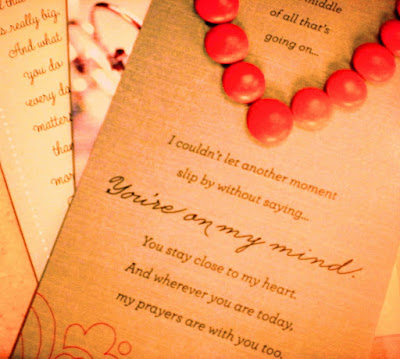 that
s really big
And what
you do
every da
matter
tha
mor
middle
of all that's
going on...
I couldn't let another moment
slip by without saying...
You're on my mind.
You stay close to my heart.
And wherever you are today,
my prayers are with you too.